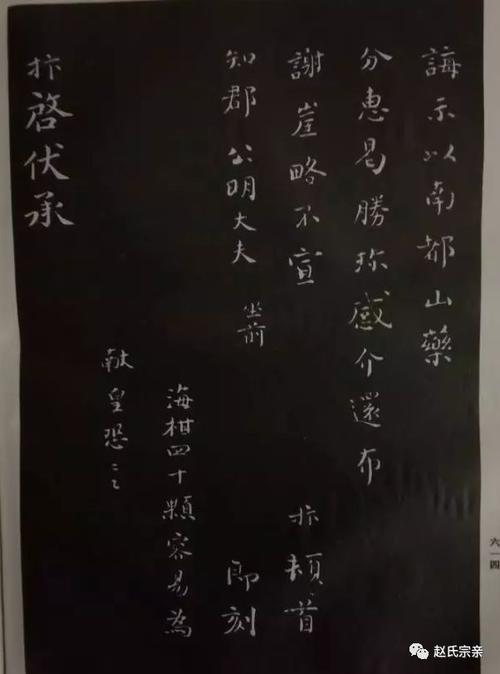 誨示以南都山藥
分惠曷勝珎感介還布
謝崖略不宣 抃頓首
知郡公明大夫 坐前 即刻
海柑四十顆容易為
献皇恐〻〻
抃啓伏承
六一四
赵氏宗亲